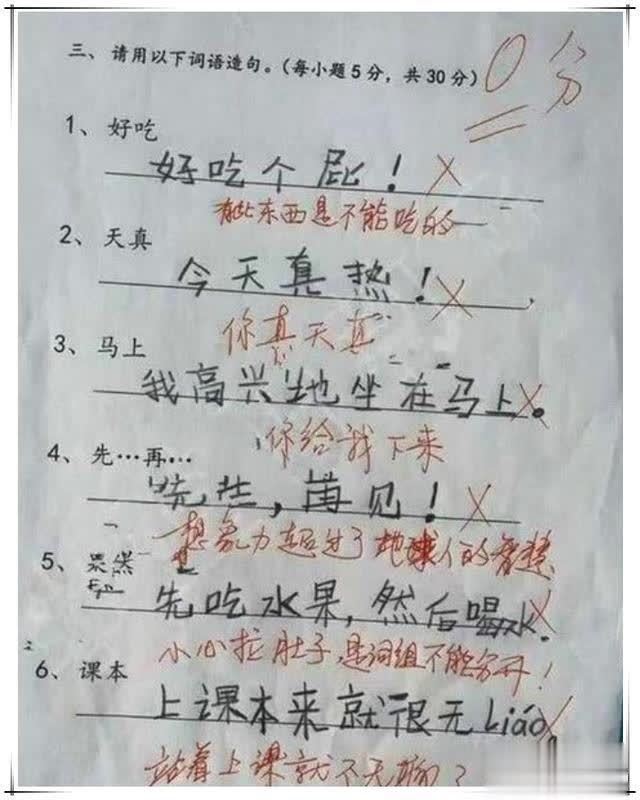 三、请用以下词语造句。(每小题5分，共30分)
0分
1、好吃
好吃个屁！
有些东西是不能吃的
2、天真
今天真热！
你真天真
3、马上
我高兴地坐在马上。
你给我下来
4、先…再…
先生，再见！
想象力超过了地球人的智慧
5、果然
先吃水果，然后喝水。
小心拉肚子，是词组不能分开！
6、课本
上课本来就很无Liáo。
站着上课就不无聊？